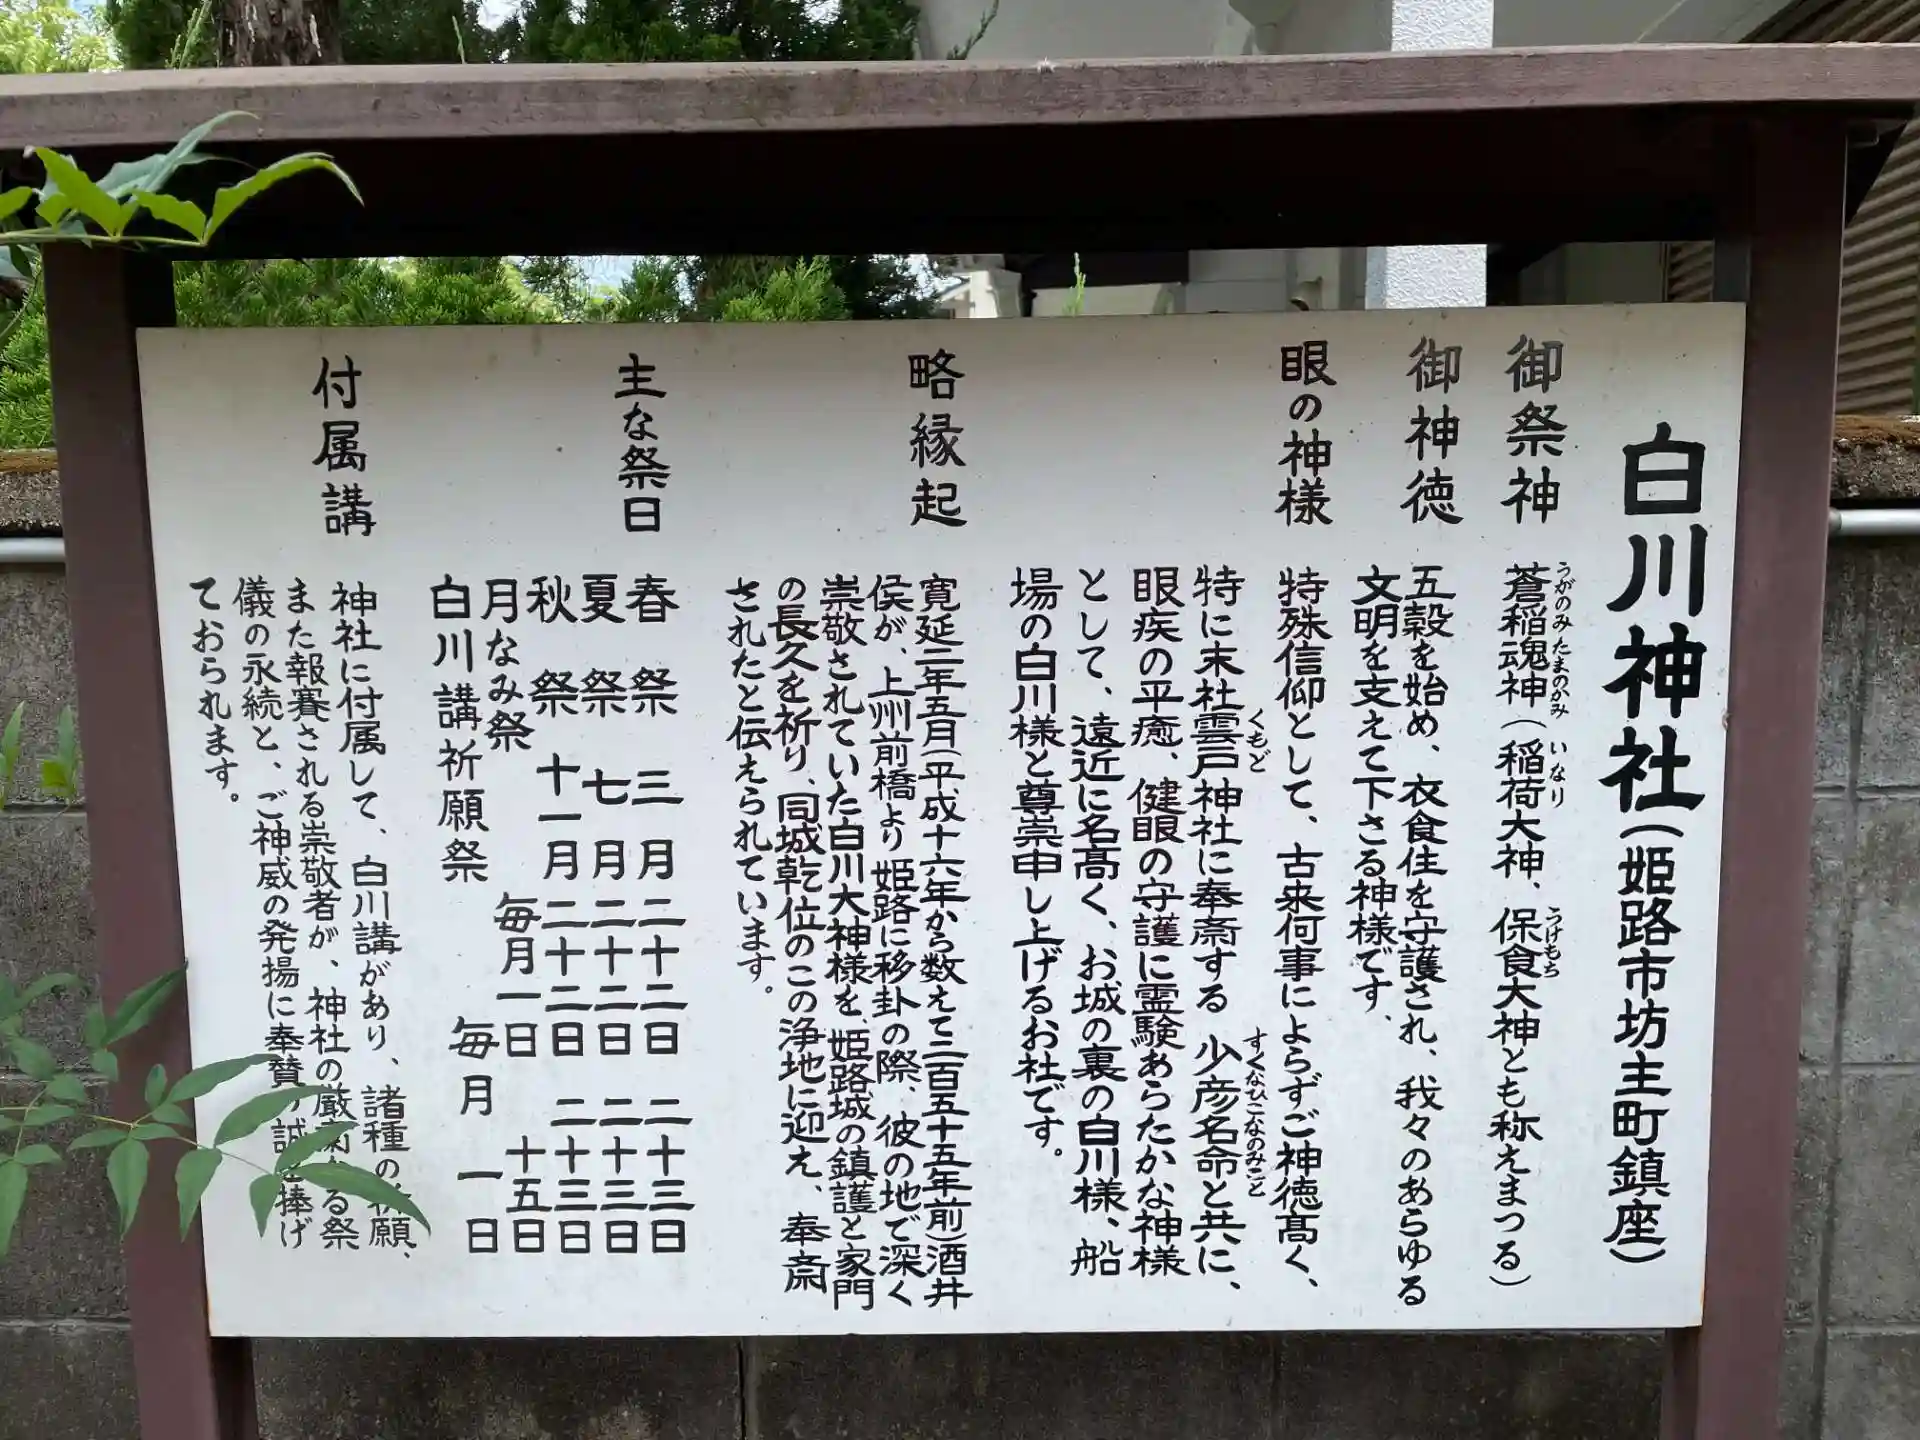 白川神社(姫路市坊主町鎮座)
御祭神
蒼稲魂神(稲荷大神、保食大神とも称えまつる)
うがのみたまのかみ
いなり
うけもち
御神徳
五穀を始め、衣食住を守護され、我々のあらゆる
文明を支えて下さる神様です.
眼の神様
特殊信仰として、古来何事によらずご神徳髙く、
特に末社雲戸神社に奉斎する 少彦名命と共に、
くもど
すくなひこなのみこと
眼疾の平癒、健眼の守護に霊験あらたかな神様
として、遠近に名髙く、お城の裏の白川様、船
場の白川様と尊崇申し上げるお社です。
略縁起
寛延二年五月(平成十六年から数えて二百五十五年前)酒井
侯が、上州前橋より姫路に移封の際、彼の地で深く
崇敬されていた白川大神様を、姫路城の鎮護と家門
の長久を祈り、同城乾位のこの浄地に迎え、奉斎
されたと伝えられています。
主な祭日
春 祭 三月二十二日 二十三日
夏 祭 七月二十二日 二十三日
秋 祭 十一月二十二日 二十三日
月なみ祭 毎月一日 十五日
白川講祈願祭 毎月 一日
付属講
神社に付属して、白川講があり、諸種の願、
また報賽される崇敬者が、神社の厳る祭
儀の永続と、ご神威の発揚に奉賛誠捧げ
ておられます。